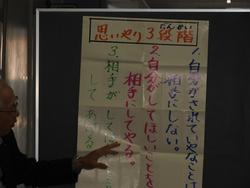 思いやり3段階
だんかい
1.自分がされていやなことは
相手にしない。
2.自分がしてほしいことを
相手にしてやる。
3.相手が
して